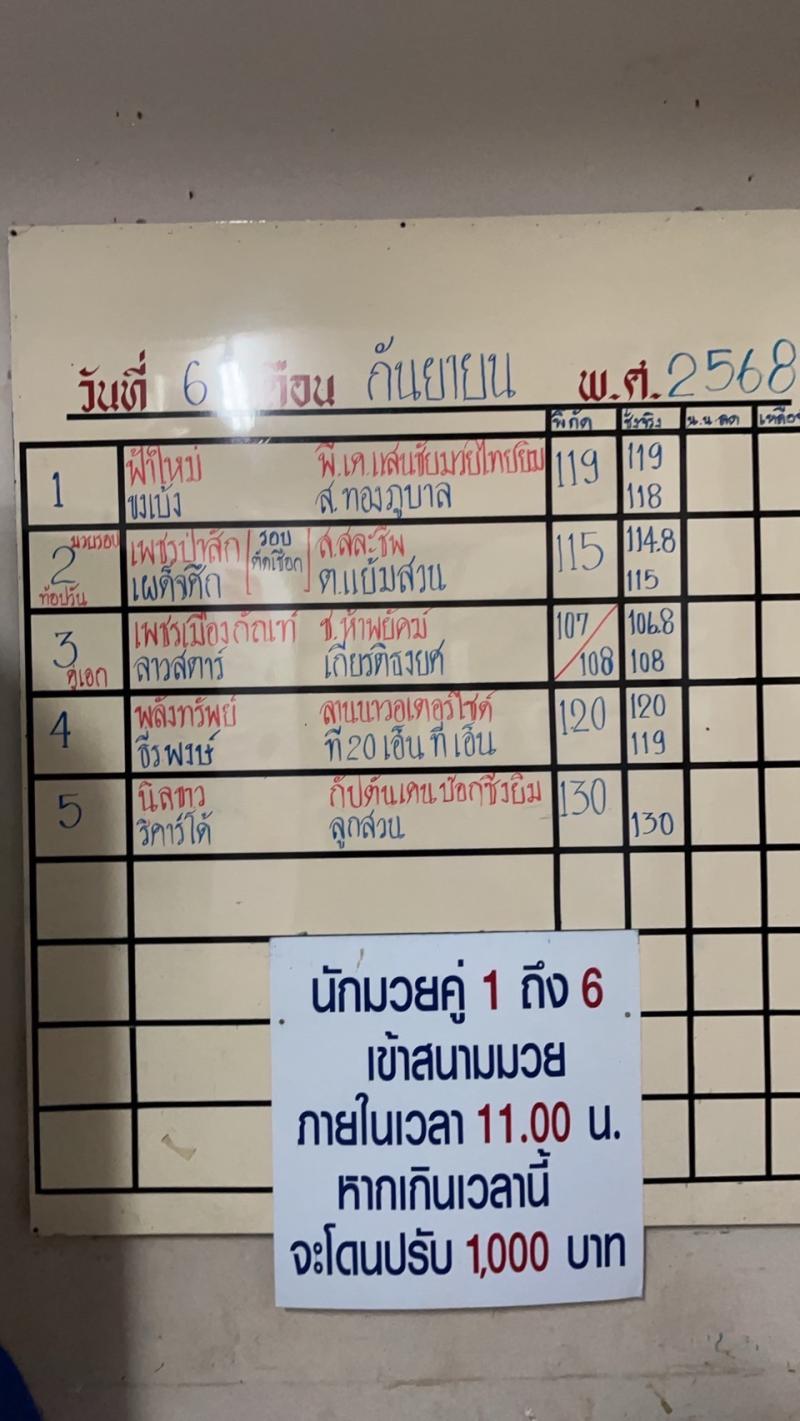 วันที่ 6 เดือน กันยายน พ.ศ. 2568
พิกัด ชั่งจริง น.น.ลด เหลือ
1 ฟ้าใหม่ พี.เค.แสนชัยมวยไทยยิม 119 119
ขงเบ้ง ส.ทองภูบาล 118
2 มวยรอบ เพชรป่าสัก รอบ ส.สละชีพ 115 114.8
ท้อปวัน เผด็จศึก คัดเลือก ต.แย้มสวน 115
3 เพชรเมืองกัณฑ์ ช.ห้าพยัคฆ์ 107 106.8
คู่เอก ลาวสตาร์ เกียรติธงยศ 108 108
4 พลังทรัพย์ ลานนาวอเตอร์ไซด์ 120 120
ธีรพงษ์ ที20เอ็น ทีเอ็น 119
5 นิลขาว กัปตันเคนบ๊อกซิ่งยิม 130
ริคาร์โด้ ลูกสวน 130
นักมวยคู่ 1 ถึง 6
เข้าสนามมวย
ภายในเวลา 11.00 น.
หากเกินเวลานี้
จะโดนปรับ 1,000 บาท